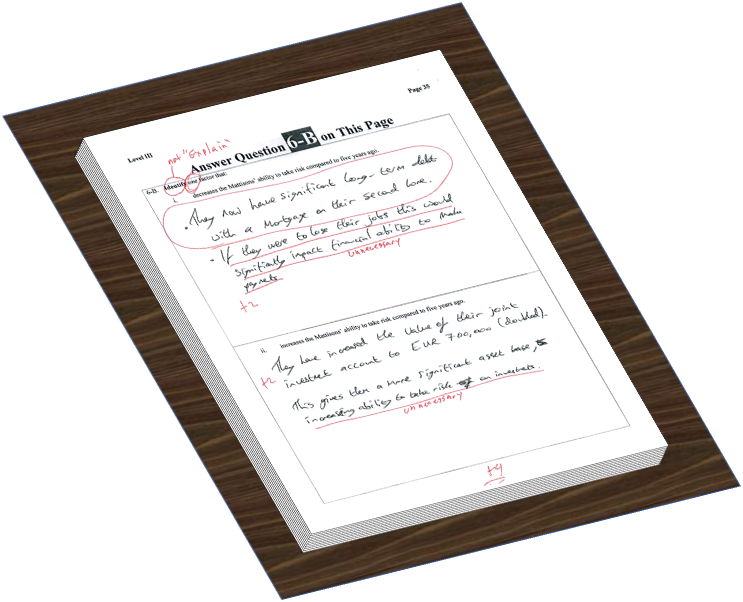 Page 38
Level III
not "Explain"
Answer Question 6-B on This Page
6-B. Identify one factor that:
i. decreases the Mattisons' ability to take risk compared to five years ago.
• They now have significant long-term debt
with a Mortgage on their second home.
• If they were to lose their jobs this would
significantly impact financial ability to make
payments
unnecessary
+2
ii. increases the Mattisons' ability to take risk compared to five years ago.
They have increased the value of their joint
+2 investment account to EUR 700,000 (doubled).
This gives them a more significant asset base,
increasing ability to take risk on investments.
unnecessary
+4